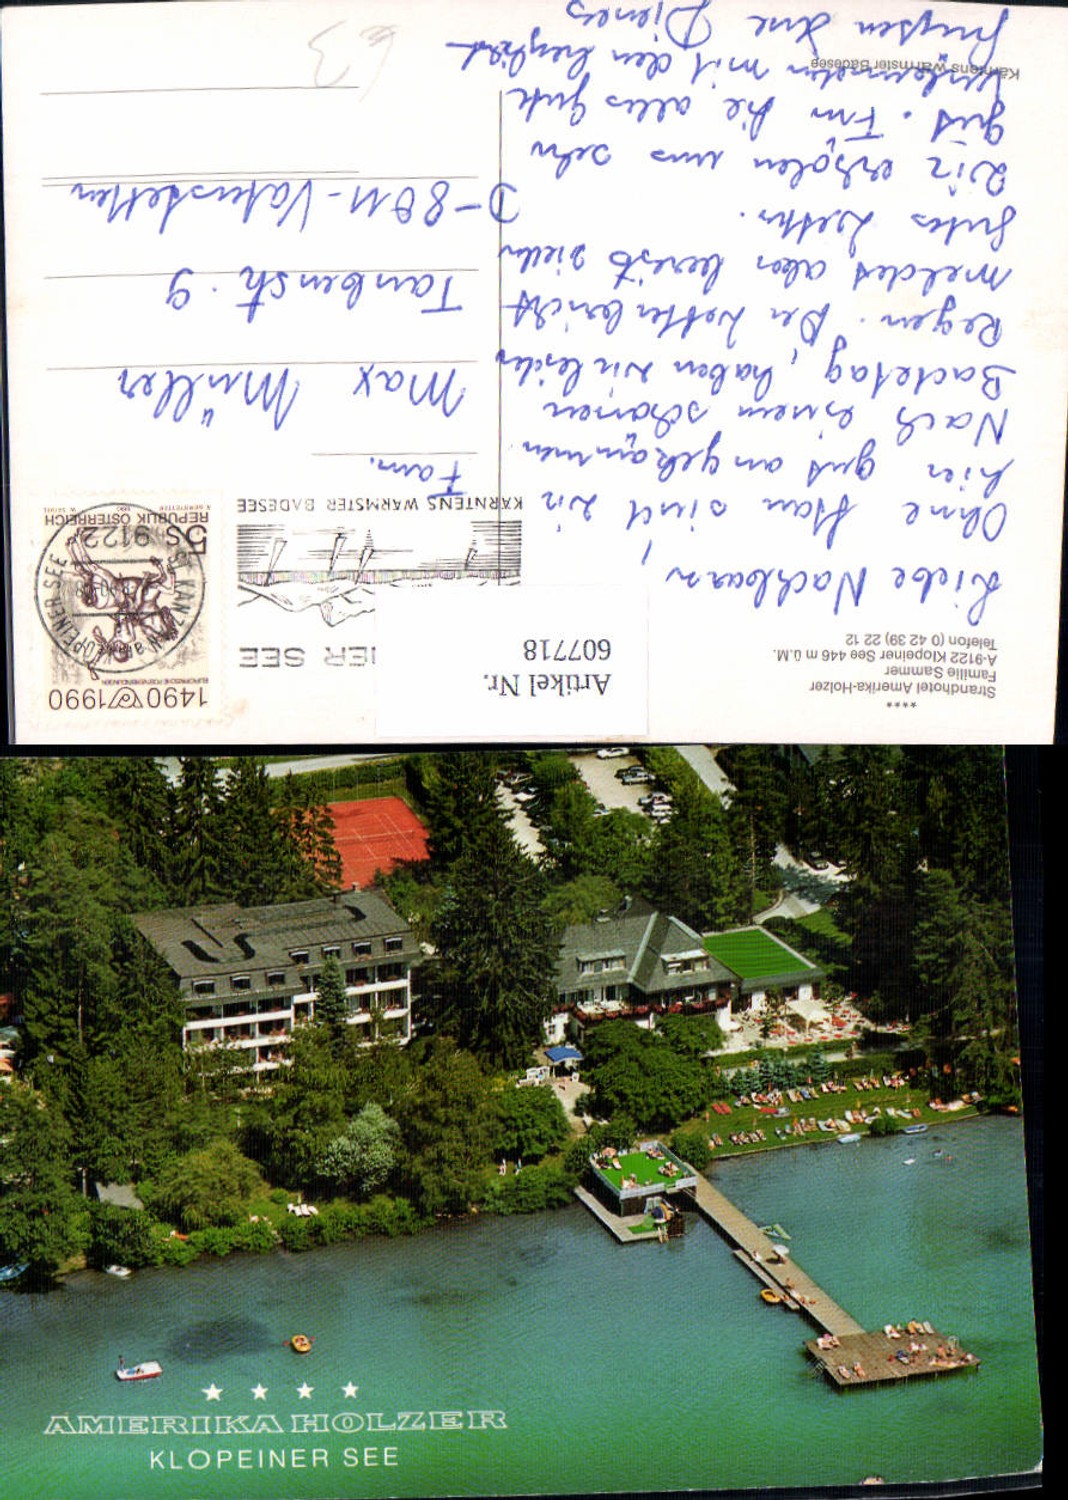 ****
Strandhotel Amerika-Holzer
Familie Sammer
A-9122 Klopeiner See 446 m ü.M.
Telefon (0 42 39) 22 12
Artikel Nr.
607718
IER SEE
KÄRNTENS WÄRMSTER BADESEE
1490 1990
EUROPÄISCHE POSTVERBINDUNGEN
5S
9122
ST. KANZIAN a. KLOPEINER SEE
REPUBLIK ÖSTERREICH
1990
Liebe Nachbarn,
Ohne Stau sind wir
hier gut angekommen.
Nach einem schönen
Badetag, haben wir leider
Regen. Der Wetterbericht
meldet aber bereits wieder
gutes Wetter.
Wir erholen uns sehr
gut. Für Sie alles Gute
mit den herzlichst
Grüßen Ihre Dienes
Fam.
Max Müller
Taubenstr. 9
D-8011-Vaterstetten
Kärntens wärmster Badesee
63
★ ★ ★ ★
AMERIKA HOLZER
KLOPEINER SEE